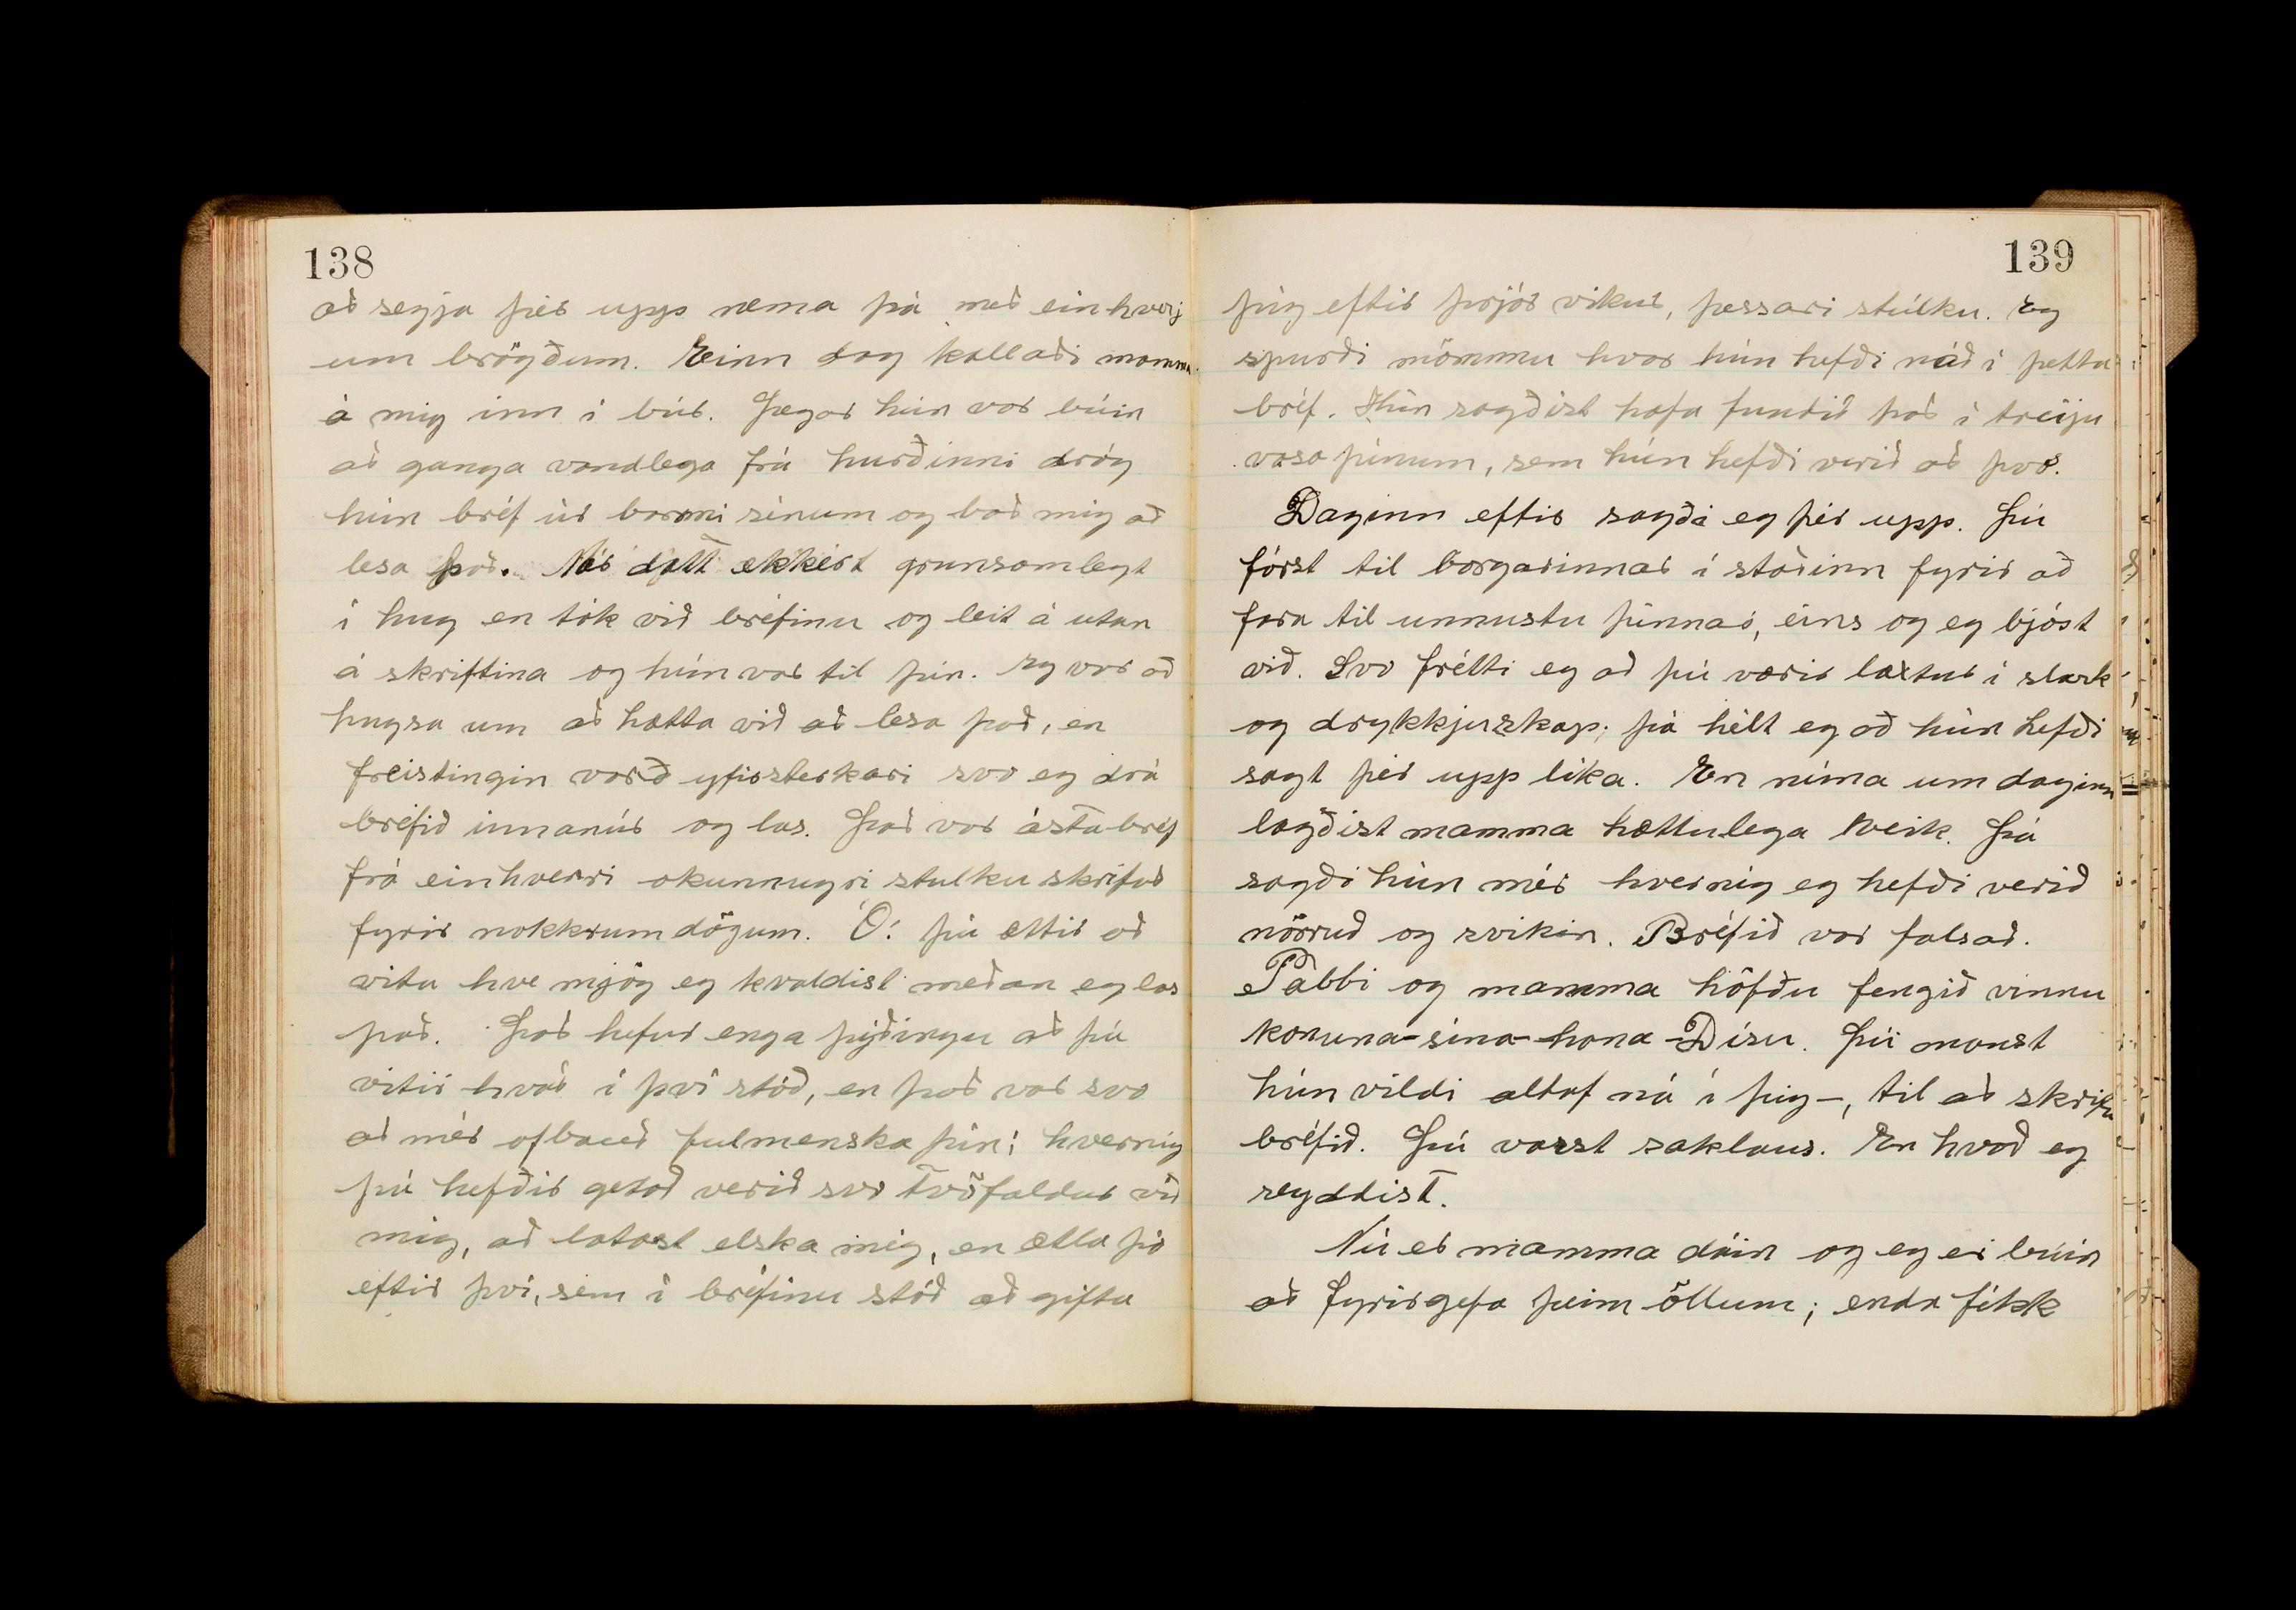 138
að segja þér upp nema þá með einhverj
um brögðum. Einn dag kallaði mamma
á mig inn í búr. Þegar hún var búin
að ganga vandlega frá hurðinni dróg
hún bréf úr barmi sínum og bað mig að
lesa það. Mér datt ekkert grunsamlegt
í hug en tók við bréfinu og leit á utan
á skriftina og hún var til þín. Eg var að
hugsa um að hætta við að lesa það, en
freistingin varð yfirsterkari svo eg dró
bréfið innanúr og las. Það var ástabréf
frá einhverri okunnugri stulku skrifað
fyrir nokkrum dögum. Ó! þú ættir að
vita hve mjög eg kvaldist meðan eg las
það. Það hefur enga þýðingu að þú
vitir hvað í því stóð, en það var svo
að mér ofbauð fulmenska þín; hvernig
þú hefðir getað verið svo tvöfaldur við
mig, að látast elska mig, en ætla þó
eftir því, sem í bréfinu stóð að gifta
139
þig eftir þrjár vikur, þessari stúlku. Eg
spurði mömmu hvar hún hefði náð í þetta
bréf. Hún sagðist hafa fundið það í treiju
vasa þínum, sem hún hefði verið að þvo.
Daginn eftir sagði eg þér upp. Þú
fórst til borgarinnar í staðinn fyrir að
fara til unnustu þinnar, eins og eg bjóst
við. Svo frétti eg að þú værir lagstur í slark
og drykkjuskap; þá hélt eg að hún hefði
sagt þér upp líka. En núna um daginn
lagðist mamma hættulega veik. Þá
sagði hún mér hvernig eg hefði verið
nörruð og svikin. Bréfið var falsað.
Pabbi og mamma höfðu fengið vinnu
konuna-sína-hana-Dísu. Þú manst
hún vildi altaf ná í þig-, til að skrifa
bréfið. Þú varst saklaus. En hvað eg
reyddist.
Nú er mamma dáin og eg er búin
að fyrirgefa þeim öllum; enda fékk